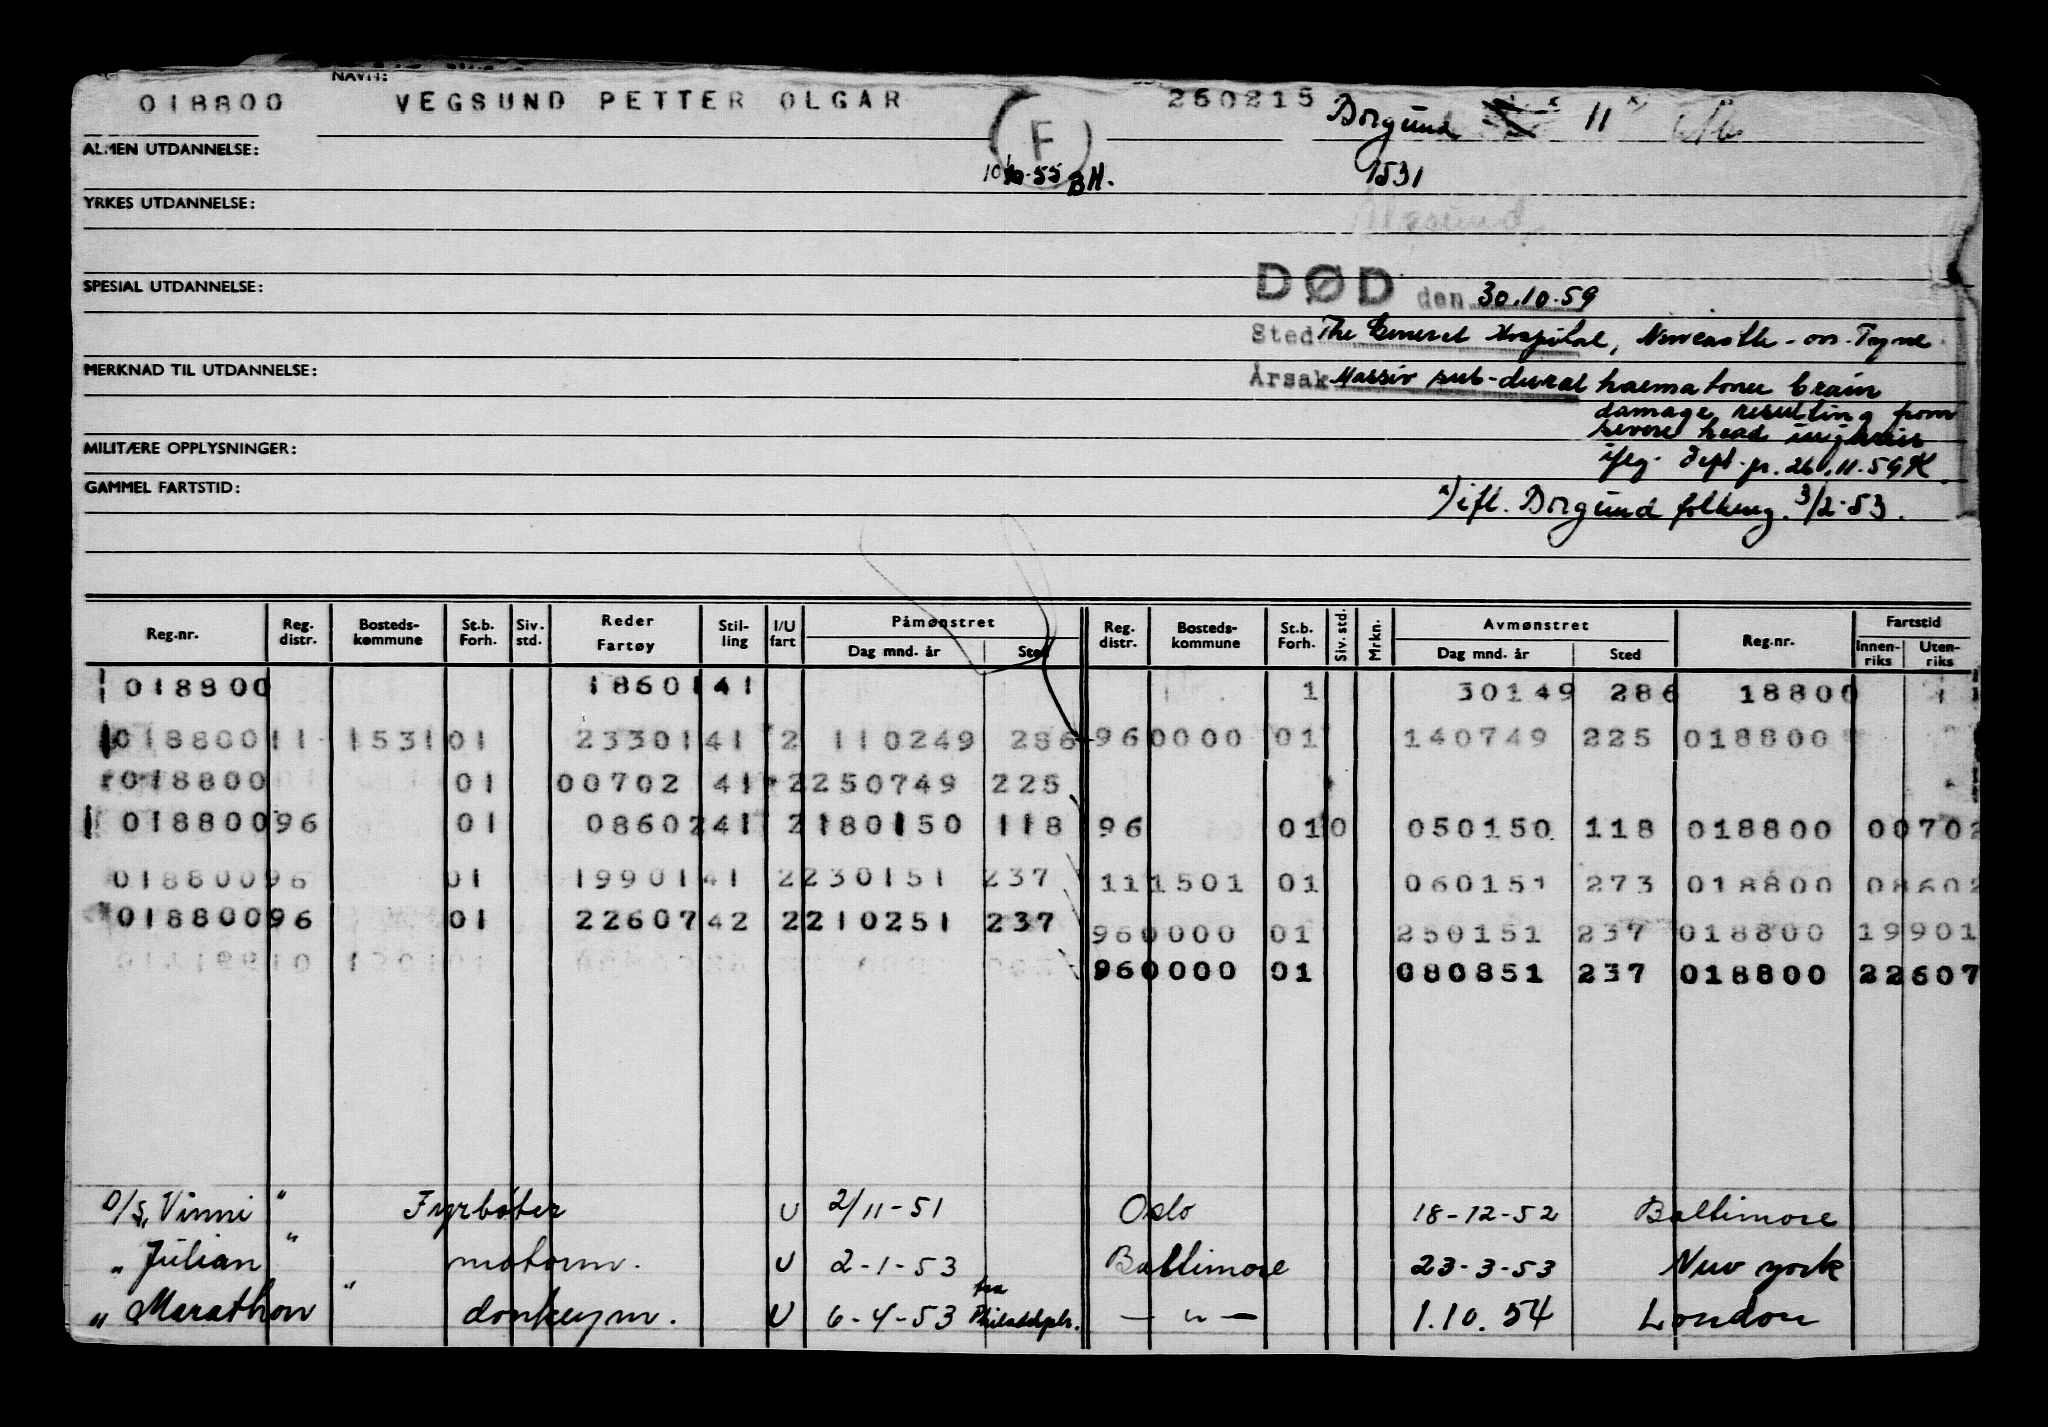 NAVN:
018800 VEGSUND PETTER OLGAR 260215 Borgund 11
F
ALMEN UTDANNELSE:
-55 BH. 1531
YRKES UTDANNELSE:
SPESIAL UTDANNELSE:
DØD den 30.10.59
Sted The General Hospital, Newcastle-on-Tyne
MERKNAD TIL UTDANNELSE:
Årsak Massiv sub-dural haematoner brain
damage, resulting from
severe head injuries
MILITÆRE OPPLYSNINGER:
iflg. 26.11.59
GAMMEL FARTSTID:
x) ifl. Borgund folkereg. 3/2-53.
Reg.nr. Reg. distr. Bosteds-kommune St.b. Forh. Siv. std. Reder Fartøy Stil-ling I/U fart Påmønstret Dag mnd. år Sted Reg. distr. Bosteds-kommune St.b. Forh. Siv. std. Mrkn. Avmønstret Dag mnd. år Sted Reg.nr. Fartstid Innen-riks Uten-riks
018800 18601 41 1 30149 286 18800
018800 11 1531 01 23301 41 2 110249 286 96 0000 01 140749 225 018800
018800 01 00702 41 2 250749 225
018800 96 01 08602 41 2 180150 118 96 01 0 050150 118 018800 00702
018800 96 01 19901 41 2 230151 237 11 1501 01 060151 273 018800 08602
018800 96 01 22607 42 2 210251 237 96 0000 01 250151 237 018800 19901
96 0000 01 080851 237 018800 22607
D/S "Vinni" Fyrbøter U 2/11-51 Oslo 18-12-52 Baltimore
" Julian" motorm. U 2-1-53 Baltimore 23-3-53 New york
" Marathon" donkeym. U 6-4-53 fra Philadelph. — " — 1.10.54 London